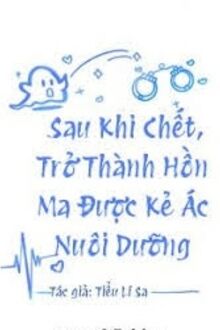 Sau Khi Chết,
Trở Thành Hồn
Ma Được Kẻ Ác
Nuôi Dưỡng
Tác giả: Tiểu Lí Sa